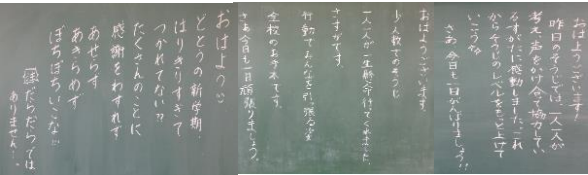 おはようございます
昨日のそうじでは、一人一人が
考え、声をかけ合って協力してい
るすがたに感動しました。これ
からそうじのレベルをもっと上げて
いこうね
さあ、今日も一日がんばりましょう!!
おはようございます。
少人数でのそうじ
一人一人が一生懸命やってくれました。
さすがです。
行動でみんなを引っ張る姿
全校のお手本です。
さあ今日も一日頑張りましょう。
おはよう
の新学期
はりきりすぎて
つかれてない??
たくさんのことに
感謝をわすれず
あせらず
あきらめず
ぼちぼちいこな
だらだらでは
ありません!